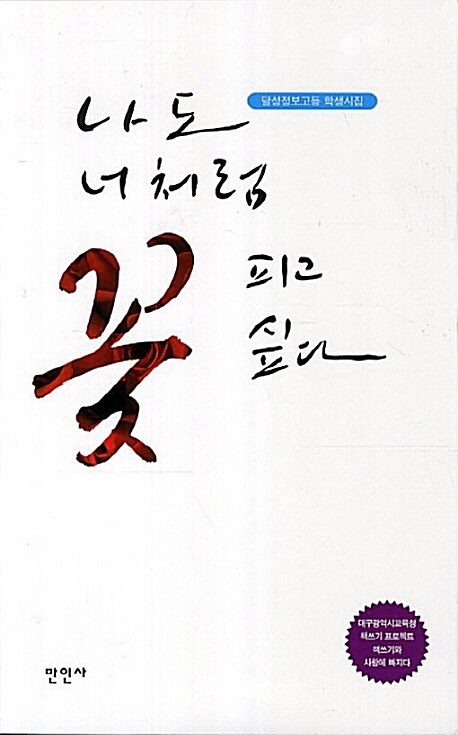 달성정보고등 학생시집
나도
너처럼
꽃 피고
싶다
대구광역시교육청
책쓰기 프로젝트
책쓰기와
사랑에 빠지다
만인사